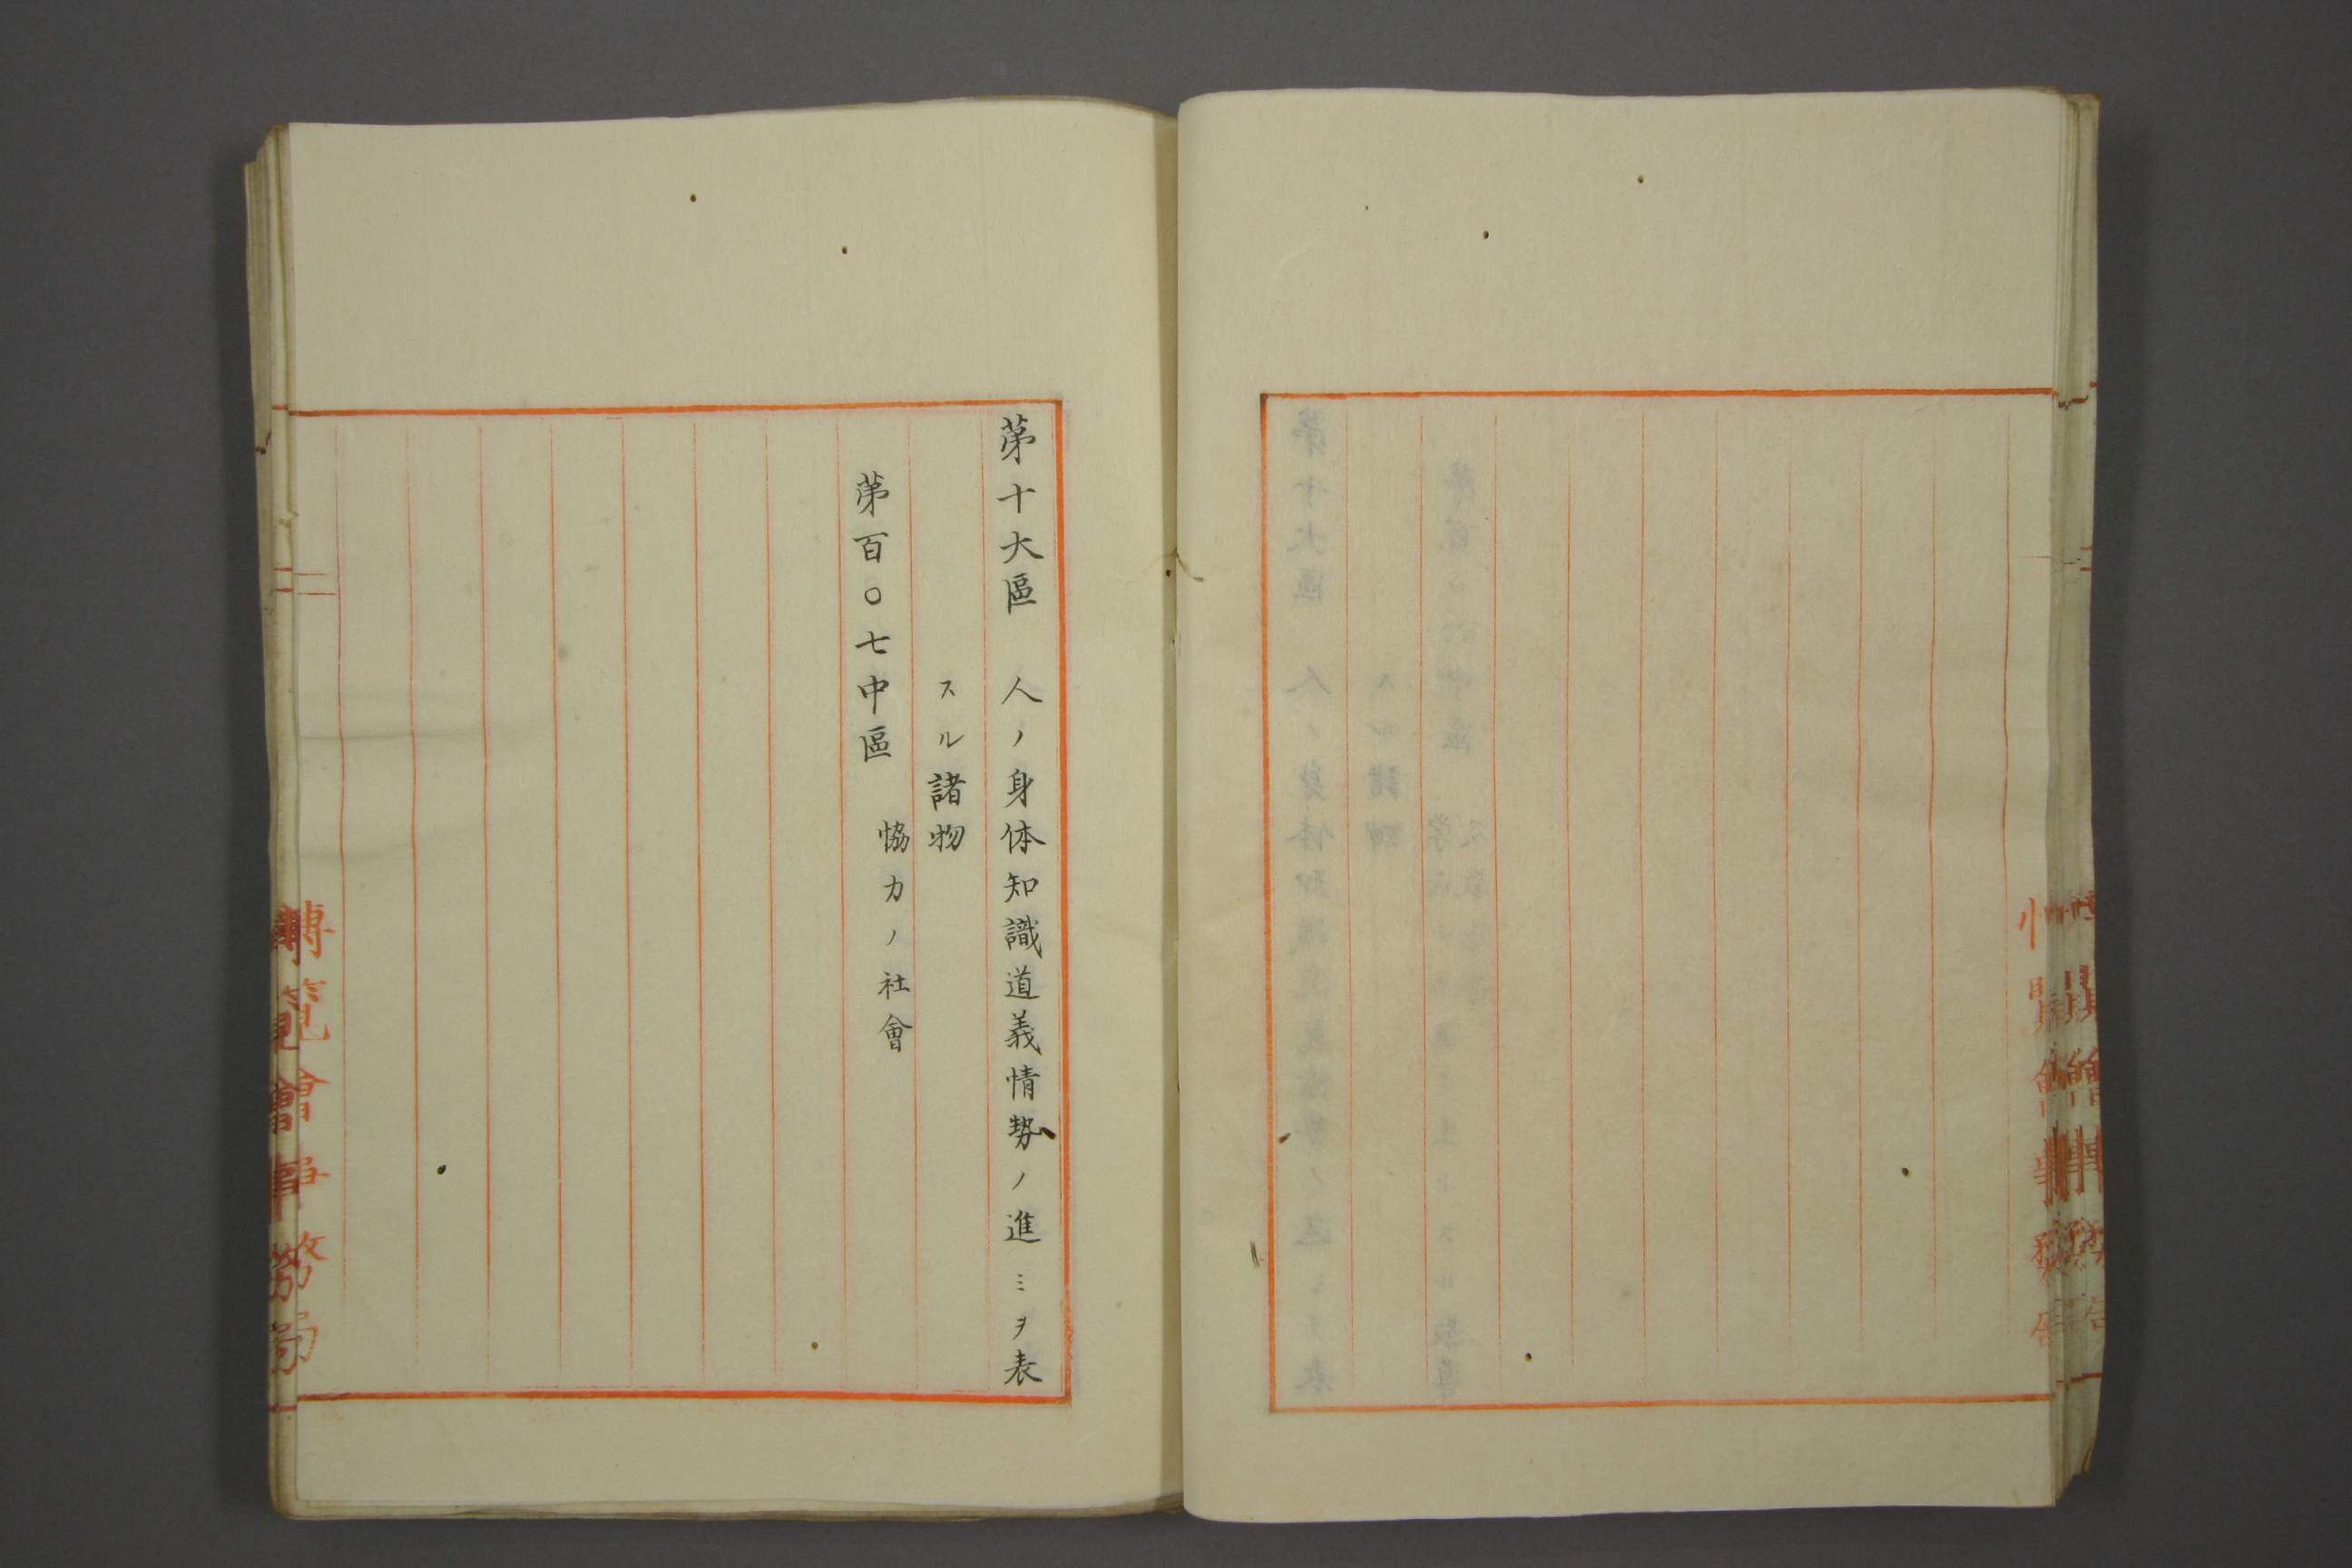 第十大區　人ノ身体知識道義情勢ノ進ミヲ表
スル諸物
第百〇七中區　恊力ノ社會
博覧會事務局